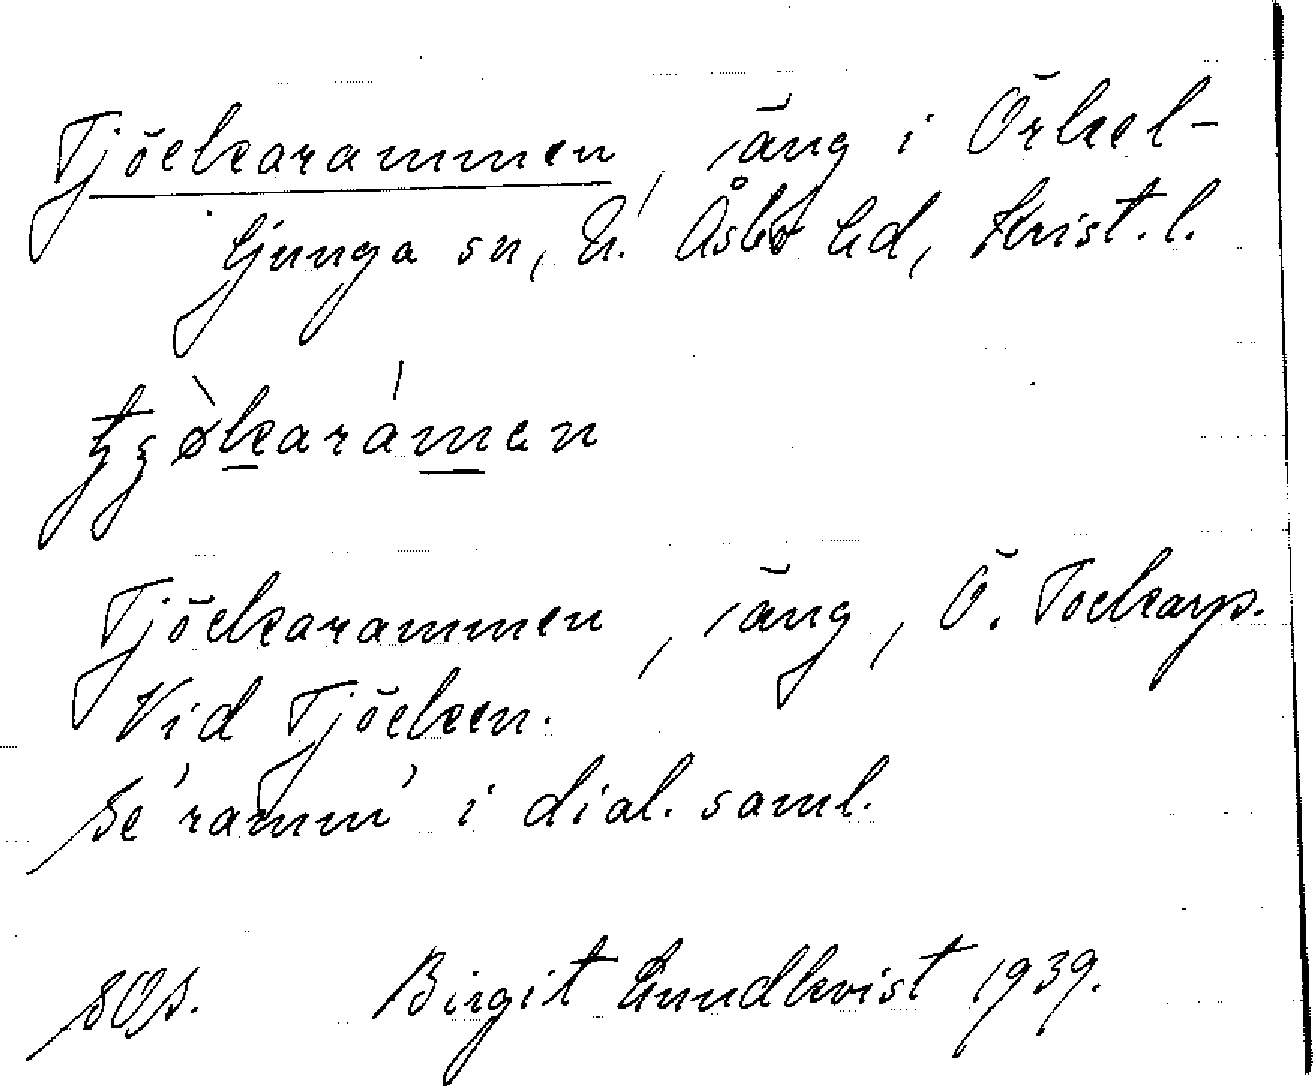 Tjöckarammen, äng i Örkel-
ljunga sn, N. Åsbo hd, Krist. l.
Tjöckarammen, äng, Ö. Tockarp.
Vid Tjöcken.
Se 'ramm' i dial. saml.
Birgit Lundkvist 1939.